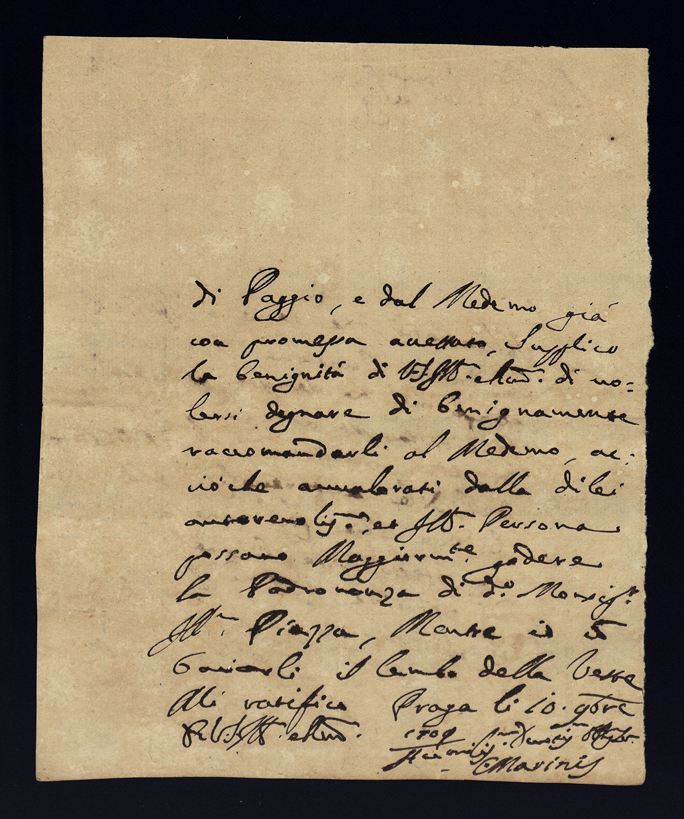 di Paggio, e dal Medemo già
con promessa accettato, Supplico
la benignità di V.S. Ill. di uo=
lersi degnare di benignamente
raccomandarli al Medemo, ac:
ciò che auualorati dalla di lei
et Ill. Persona
possano Maggiormte. godere
la Padronanza di do. Monsigr.
Illm. Piazza, Mentre io in
bacciarli il lembo della Veste
Mi ratifico Praga li 10. 9bre
1709
D. V. S. Ill.
Marinis